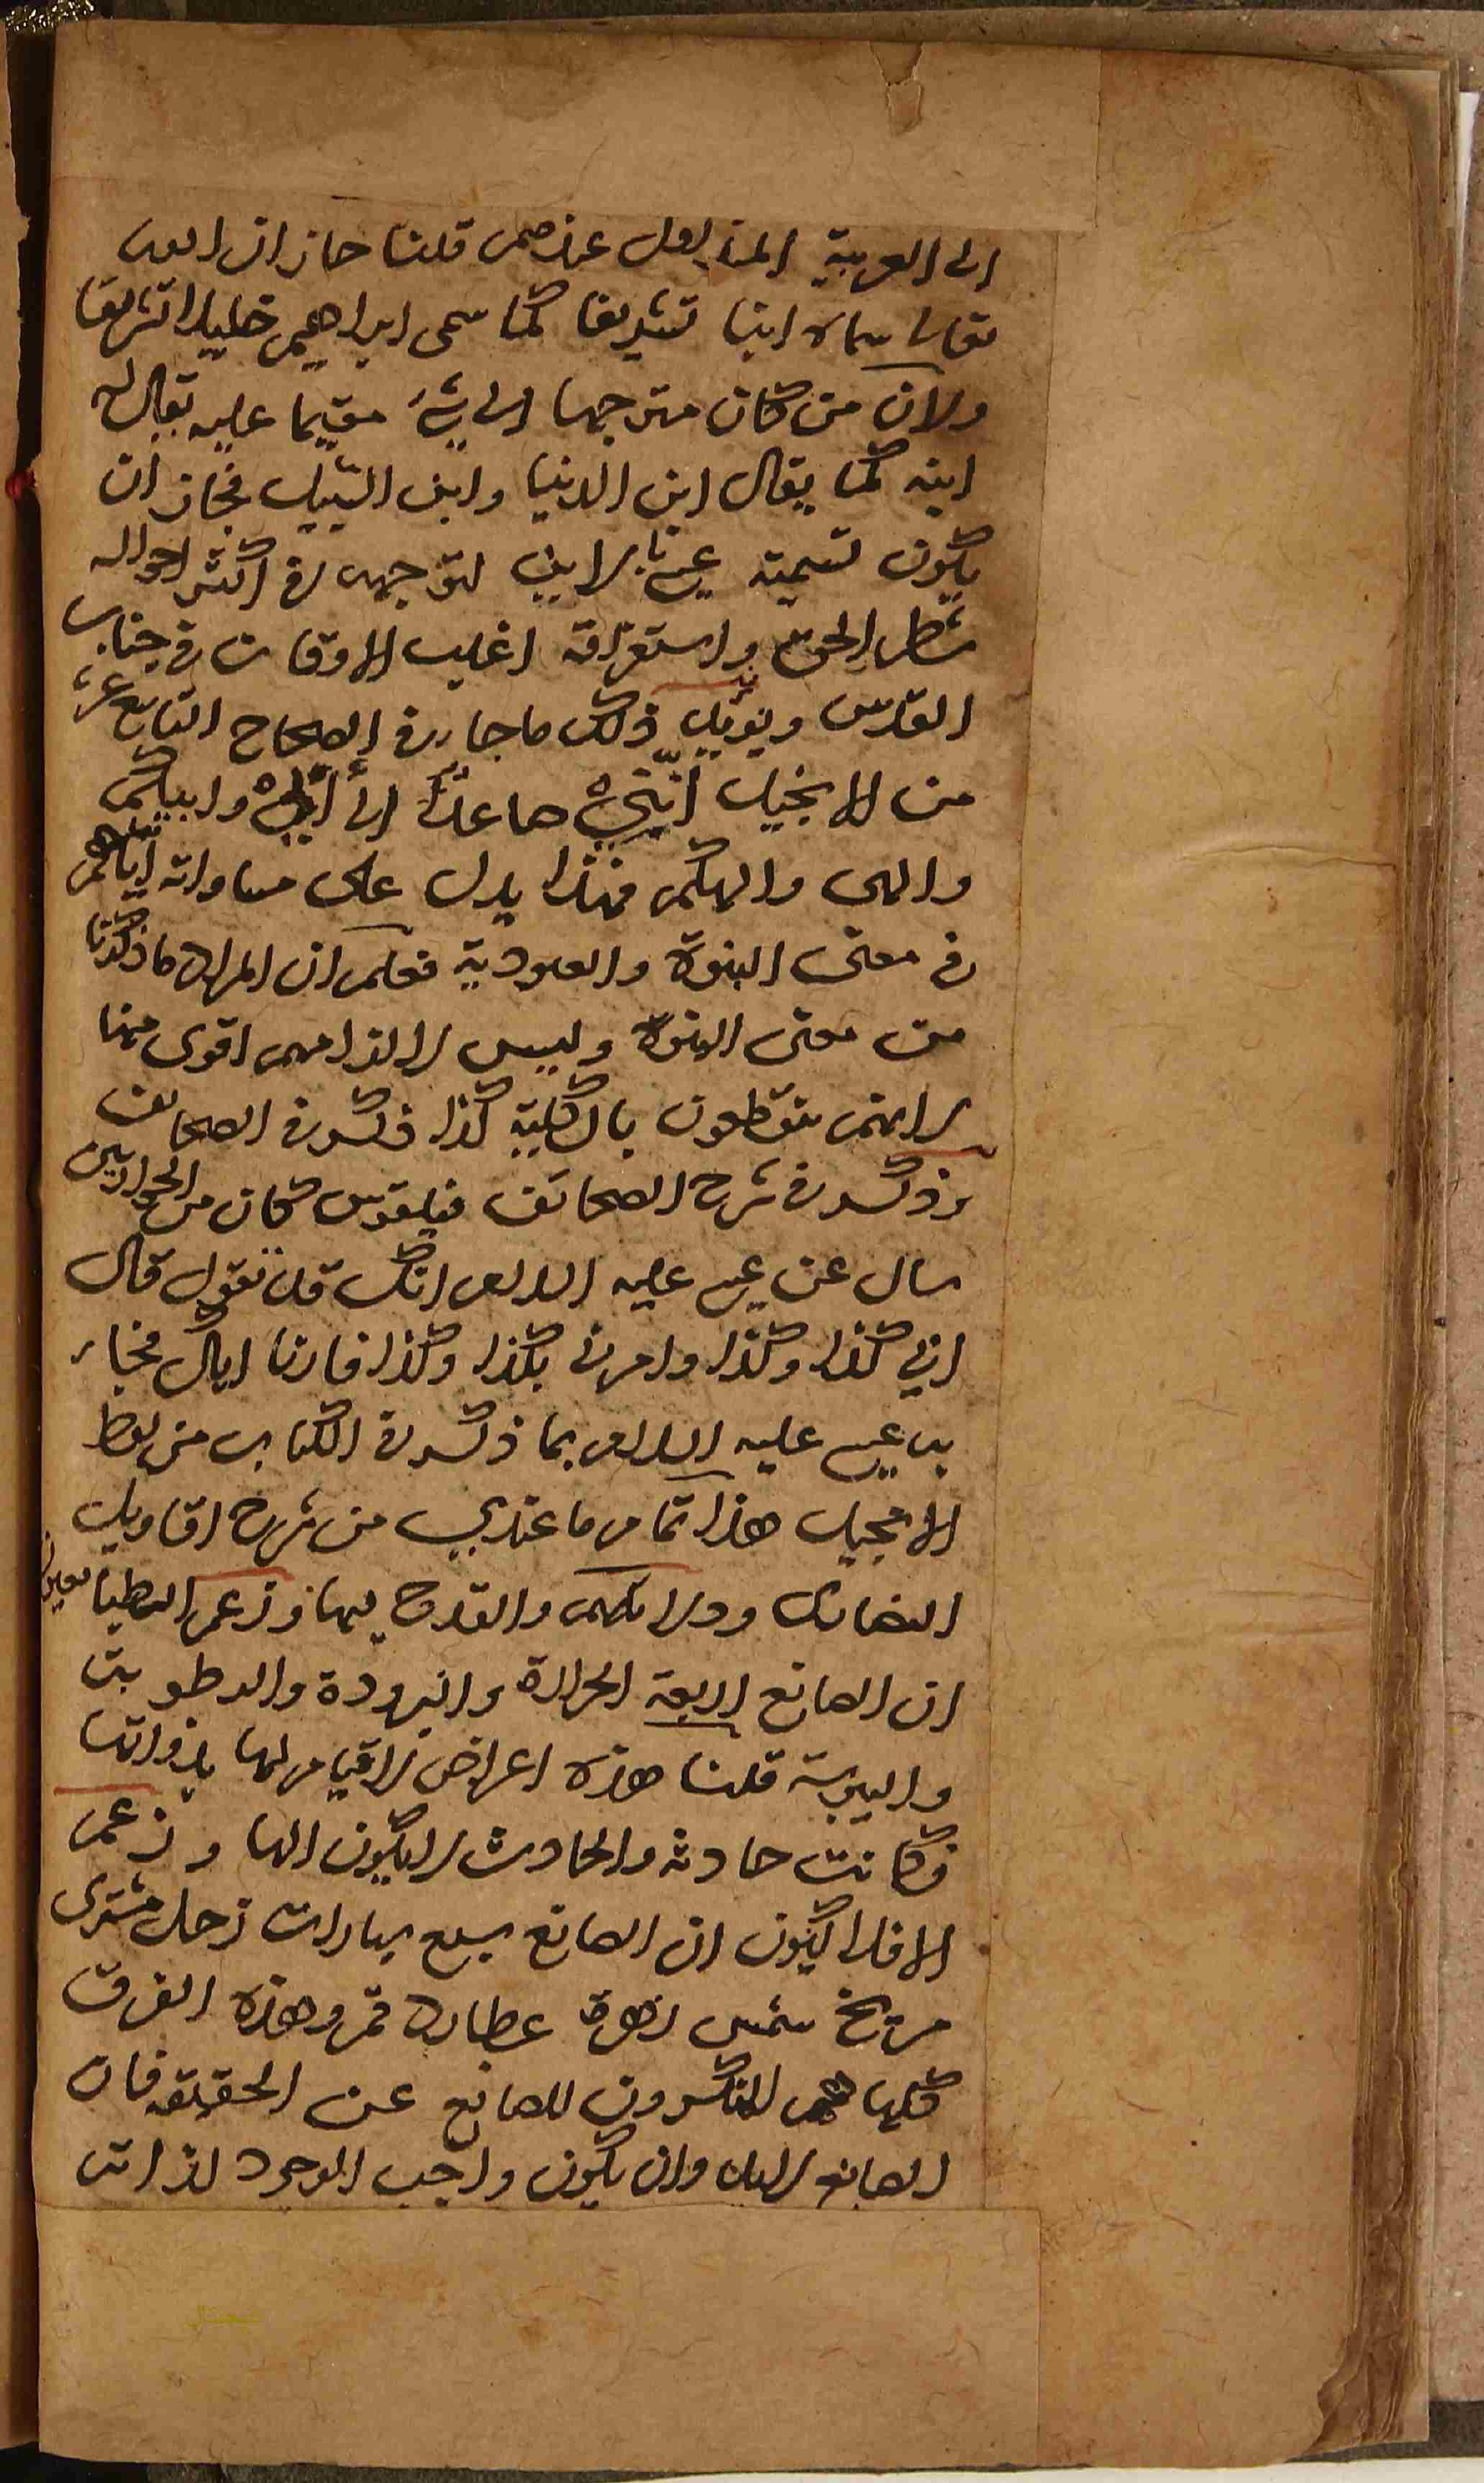 الى العربية المتداول عندهم قلنا جاز ان الله
تعالى سماه ابنا تشريفا كما سمى ابراهيم خليلا تشريفا
ولان من كان متوجها الى شئ مقيما عليه يقال له
ابنه كما يقال ابن الدنيا وابن السبيل فجاز ان
يكون تسمية عيسى بالابن لتوجهه في اكثر احواله
شطر الحق واستغراقه اغلب الاوقات في جناب
القدس ويؤيد ذلك ما جاء في الصحاح التاسع عشر
من الانجيل انني صاعد الى ابي وابيكم
والهي والهكم فهذا يدل على مساواته اياهم
في معنى البنوة والعبودية فعلم ان المراد ما ذكرنا
من معنى البنوة وليس لالزامهم اقوى منها
لانهم ينقطعون بالكلية كذا ذكر في الصحائف
وذكر في شرح الصحائف فيلقوس كان من الحواريين
سال عن عيسى عليه السلام انك قد تقول قال
ابي كذا وكذا وامرني بكذا وكذا فارنا اباك فجاء
به عيسى عليه السلام بما ذكر في الكتاب من لفظ
الانجيل هذا تمام ما عندي من شرح اقاويل
النصارى ودلائلهم والقدح فيها وزعم الطبائعيون
ان الصانع اربعة الحرارة والبرودة والرطوبة
واليبوسة قلنا هذه اعراض لا قيام لها بذواتها
فكانت حادثة والحادث لا يكون الها وزعم
الافلاكيون ان الصانع سبع سيارات زحل مشترى
مريخ شمس زهرة عطارد قمر وهذه الفرق
كلها هم المنكرون للصانع عن الحقيقة فان
الصانع لابد وان يكون واجب الوجود لذاته